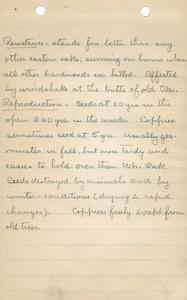 Resistance - stands fire better than any
other eastern oaks, surviving on burns when
all other hardwoods are killed. Affected
by windshake at the butts of old trees.
Reproduction - Seeds at 20 yrs in the
open & 50 yrs. in the woods. Coppice
sometimes seed at 5 yrs. Usually ger-
minates in fall, but more tardy and
easier to hold over than Wh. Oak.
Seeds destroyed by animals and by
winter conditions (drying & rapid
changes). Coppices freely except from
old trees.